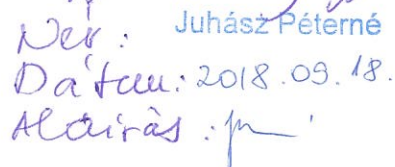 Név: Juhász Péterné
Dátum: 2018.09.18.
Aláírás: